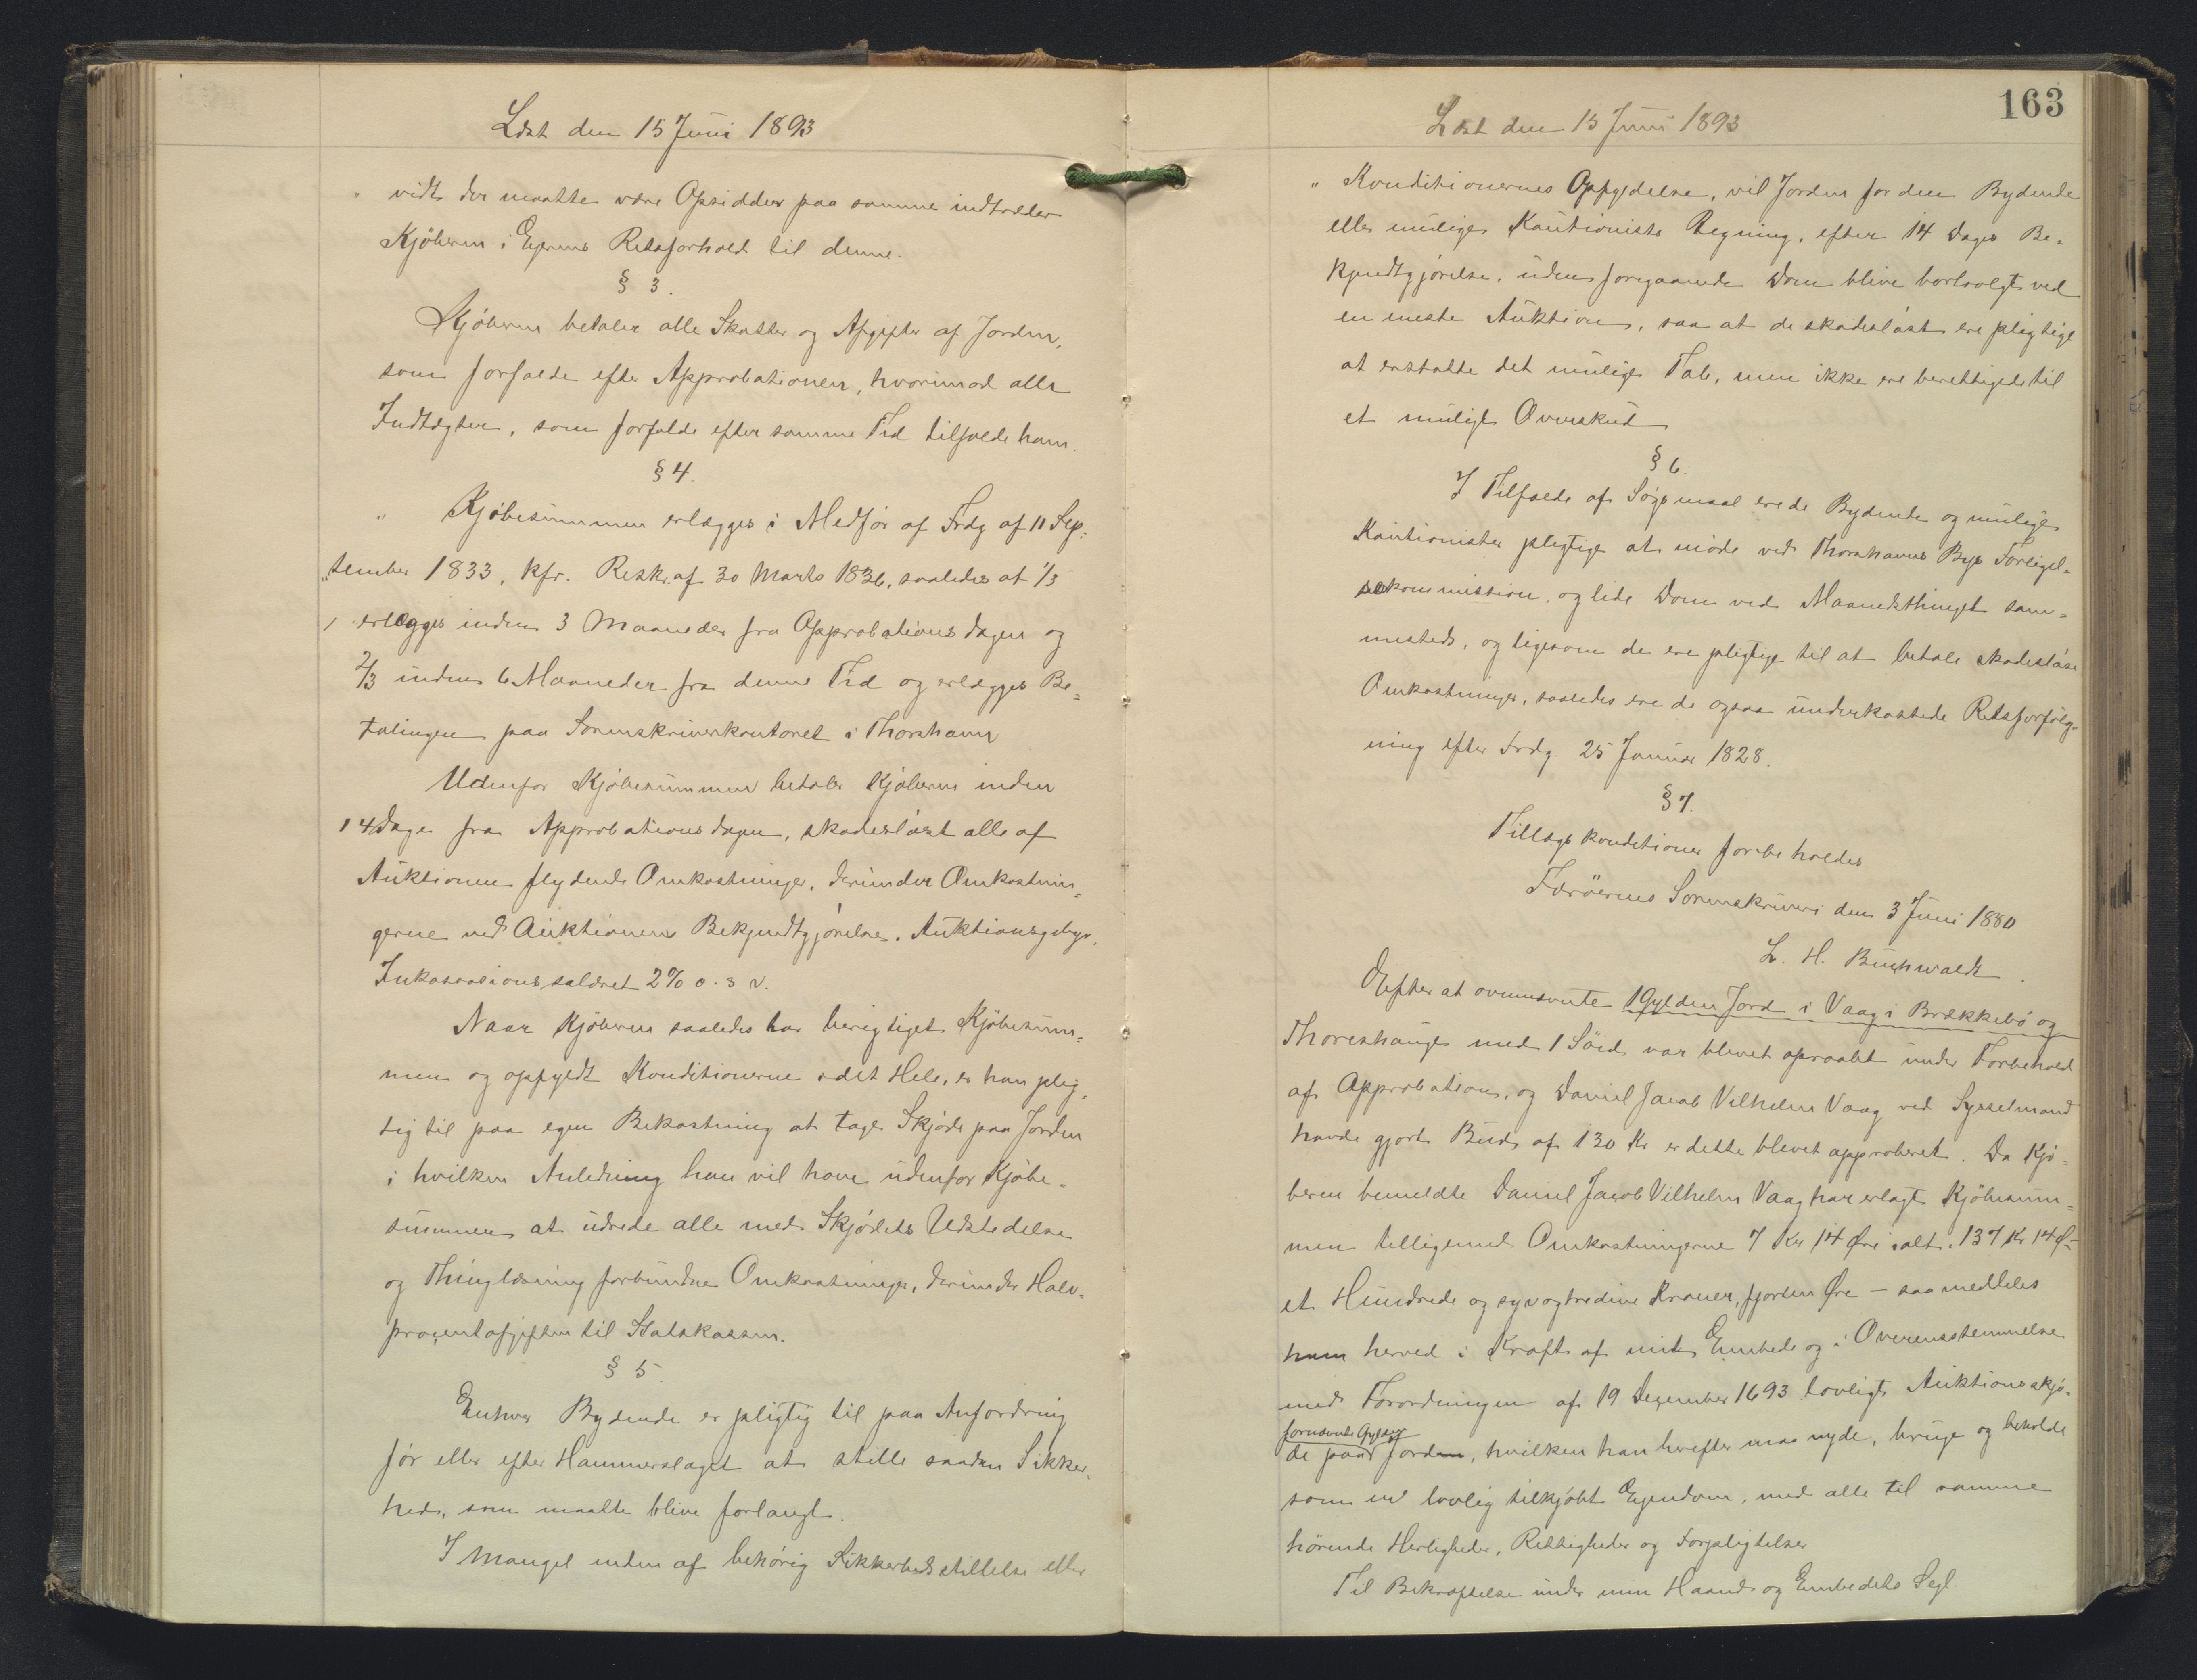 Læst den 15 Juni 1893
vidt der maatte være Opsidder paa samme indtræder
Kjøberen i Eierens Retsforhold til denne.
§ 3.
Kjøberen betaler alle Skatter og Afgifter af Jorden,
som forfalde efter Approbationen, hvorimod alle
Indtægter, som forfalde efter samme Tid tilfalde ham.
§ 4.
" Kjøbesummen erlægges i Medfør af Frdg af 11 Sep-
"tember 1833, kfr. Reskr. af 30 Marts 1836, saaledes at 1/3
erlægges inden 3 Maaneder fra Approbationsdagen og
2/3 inden 6 Maaneder fra denne Tid og erlægges Be-
talingen paa Sorenskriverkontoret i Thorshavn
Udenfor Kjøbesummen betaler Kjøberen inden
14 Dage fra Approbationsdagen, skadesløst alle af
Auktionen flydende Omkostninger, derunder Omkostnin-
gerne ved Auktionens Bekjendtgjørelse, Auktionsgebyr,
Inkassationssalæret 2% o. s v.
Naar Kjøberen saaledes har berigtiget Kjøbesum-
men og opfyldt Konditionerne i det Hele, er han plig-
tig til paa egen Bekostning at tage Skjøde paa Jorden
i hvilken Anledning han vil have udenfor Kjøbe-
summen at udrede alle med Skjødets Udstedelse
og Thinglæsning forbundne Omkostninger, derunder Halv-
procentafgiften til Statskassen.
§ 5.
Enhver Bydende er pligtig til paa Anfordring
før eller efter Hammerslaget at stille saadan Sikker-
hed, som maatte blive forlangt.
I Mangel enten af behørig Sikkerhedsstillelse eller
163
Læst den 15 Juni 1893
" Konditionernes Opfyldelse, vil Jorden for den Bydende
eller mulige Kautionists Regning, efter 14 Dages Be-
kjendtgjørelse, uden foregaaende Dom blive bortsolgt ved
en eneste Auktion, saa at de skadesløst ere pligtige
at erstatte det mulige Tab, men ikke ere berettigede til
et muligt Overskud
§ 6.
I Tilfælde af Søgsmaal ere de Bydende og mulige
Kautionister pligtige at møde ved Thorshavns Bys Forligel-
seskommission, og lide Dom ved Maanedsthinget sam-
mesteds, og ligesom de ere pligtige til at betale skadesløse
Omkostninger, saaledes ere de ogsaa underkastede Retsforfølg-
ning efter Frdg. 25 Januar 1828.
§ 7.
Tillægskonditioner forbeholdes
Færøernes Sorenskriveri den 3 Juni 1880
L. H. Buchwaldt.
Efterat ovennævnte 1 Gylden Jord i Vaag i Brækkebø og
Thoreshauge med 1 Söid var blevet opraabt under Forbehold
af Approbation, og Daniel Jacob Vilhelm Vaag ved Sysselmand
havde gjort Bud af 130 Kr er dette blevet approberet. Da Kjø-
beren bemeldte Daniel Jacob Vilhelm Vaag har erlagt Kjøbesum-
men tilligemed Omkostningerne 7 Kr 14 Øre ialt: 137 Kr 14 Ø -
et Hundrede og syvogtredive Kroner, fjorten Øre - saa meddeles
ham herved i Kraft af mit Embede og i Overensstemmelse
med Forordningen af 19 December 1693 lovligt Auktionsskjø-
fornævnte Gylden
de paa Jorden, hvilken han herefter maa nyde, bruge og beholde
som en lovlig tilkjøbt Eiendom, med alle til samme
hørende Herligheder, Rettigheder og Forpligtelser
Til Bekræftelse under min Haand og Embedets Segl.